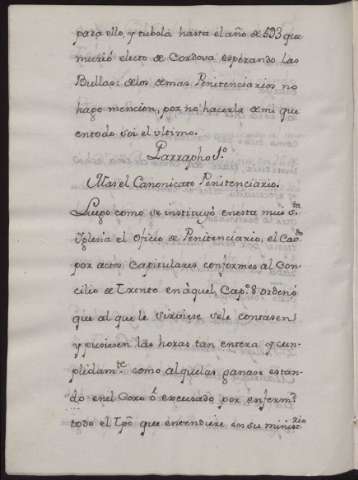 para ello, y tubola hasta el año de 593 que
murió electo de Cordova esperando las
Bullas: de los demas Penitenciarios no
hago mencion, por no hacerla de mi que
en todo soi el ultimo.
Parrapho 1.º
Mas el Canonicato Penitenciario.
Luego como se instituyó en esta mui S.ta
Iglesia el Oficio de Penitenciario, el Cav.do
por actos Capitulares conformes al Con-
cilio de Trento en aquel Cap.º 8. ordenó
que al que le sirviese se le contasen
y pusiesen las horas tan entera y cun-
plidam.te como alquelas ganase estan-
do en el Coro ó escusado por enferm.d
todo el tpo que entendiere en su minist.rio